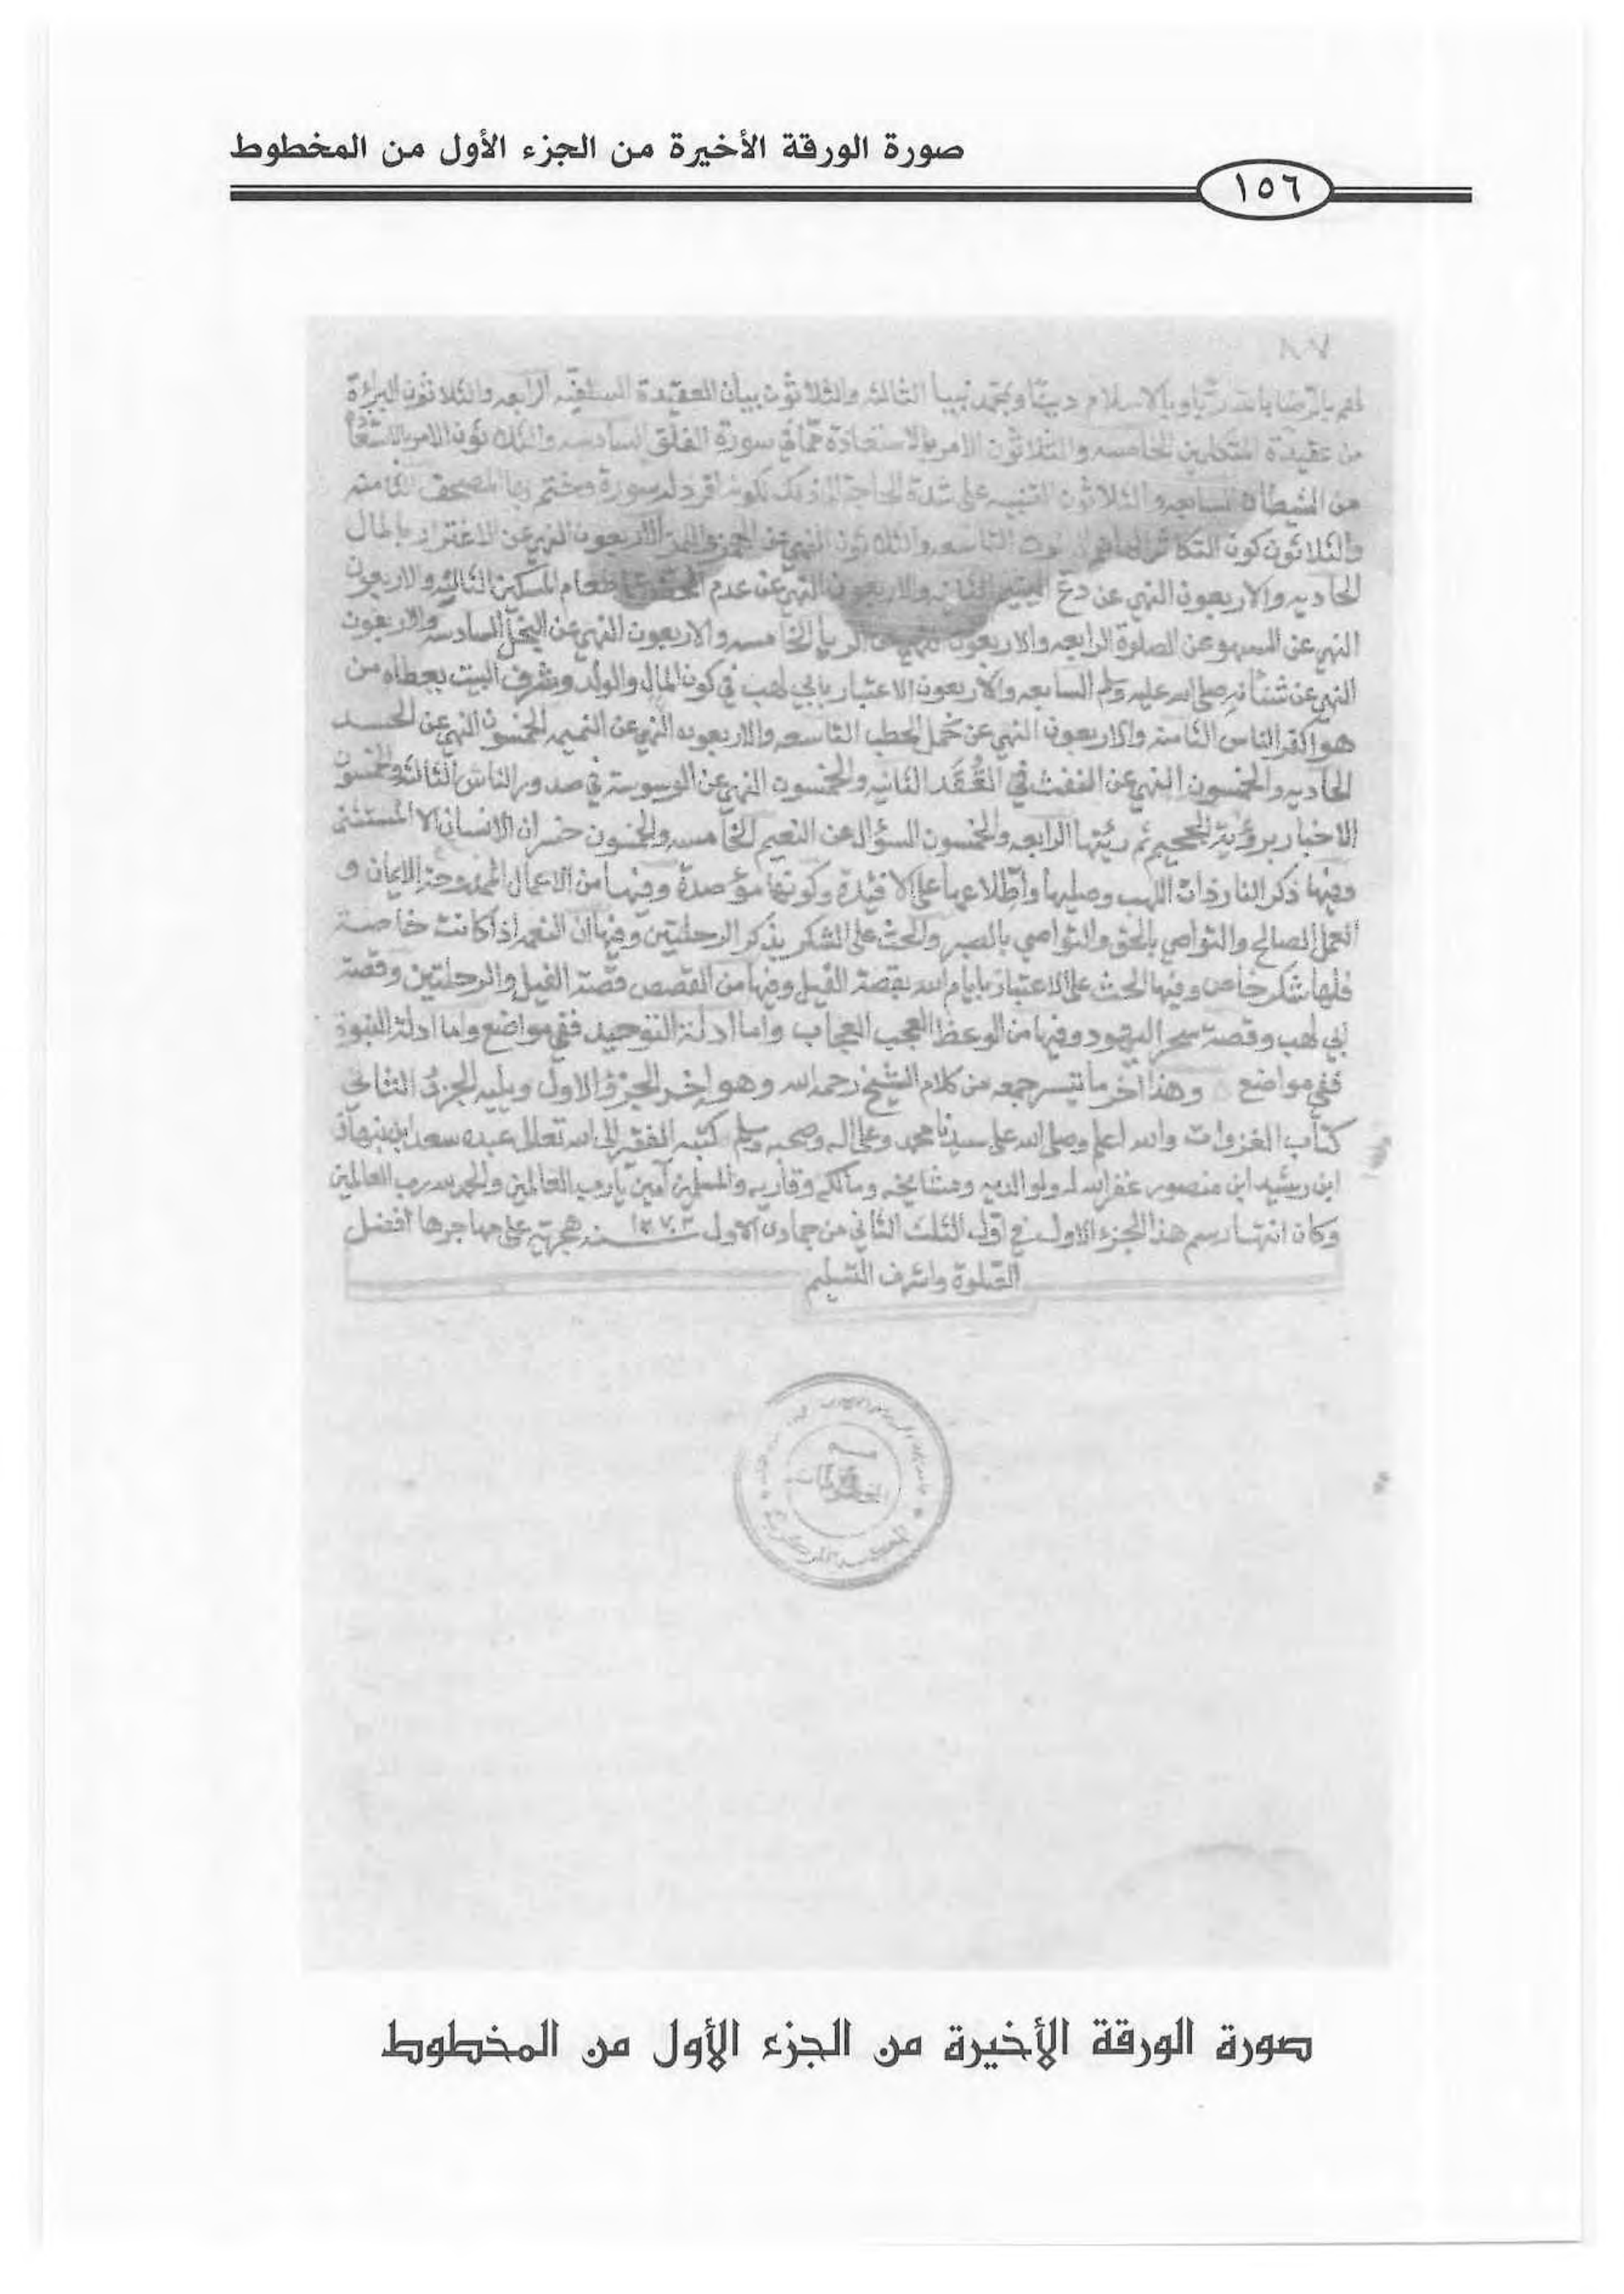 صورة الورقة الأخيرة من الجزء الأول من المخطوط
١٥٦
٨٧
بالله ربا وبالاسلام دينا وبمحمد نبيا الثالثه والثلاثون بيان العقيدة السلفيه الرابعه والثلاثون البراءة
من عقيدة المتكلمين الخامسه والثلاثون الامر بالاستعاذة ممّا في سورة الفلق السادسه والثلاثون الامر بالاستعاذة
من الشيطان السابعه والثلاثون التنبيه على شدة الحاجة الى ذلك لكونه افرد له سورة وختم بها المصحف الثامنه
والثلاثون كون التكاثر التاسعه والثلاثون النهي عن الهمز واللمز الاربعون النهي عن الاغترار بالمال
الحاديه والاربعون النهي عن دعّ اليتيم الثانيه والاربعون النهي عن عدم طعام المسكين الثالثه والاربعون
النهي عن السهو عن الصلوة الرابعه والاربعون النهي عن الريا الخامسه والاربعون النهي عن البخل السادسه والاربعون
النهي عن شنأنه صلى الله عليه وسلم السابعه والاربعون الاعتبار بابي لهب في كون المال والولد وشرف البيت يعطاه من
هو اكفر الناس الثامنه والاربعون النهي عن حَمل الحطب التاسعه والاربعون النهي عن النميمه الخمسون النهي عن الحسد
الحاديه والخمسون النهي عن النفث في العُقَد الثانيه والخمسون النهي عن الوسوسة في صدور الناس الثالثة والخمسون
الاخبار برؤية الجحيم ثم رئيتها الرابعه والخمسون السؤال عن النعيم الخامسه والخمسون خسران الانسان الا المستثنى
وفيها ذكر النار ذات اللهب وصليها واطّلاعها على الافئدة وكونها مؤصدة وفيها من الاعمال الممدوحة الايمان و
العمل الصالح والتواصي بالحق والتواصي بالصبر والحث على الشكر بذكر الرحلتين وفيها ان النعمه اذا كانت خاصة
فلها شكر خاص وفيها الحث على الاعتبار بايام الله بقصة الفيل وفيها من القصص قصة الفيل والرحلتين وقصة
ابي لهب وقصة سحر اليهود وفيها من الوعظ العجب العجاب واما ادلة التوحيد ففي مواضع واما ادلة النبوة
ففي مواضع وهذا آخر ما تيسر جمعه من كلام الشيخ رحمه الله وهو اخر الجزؤ الاول ويليه الجزؤ الثاني
كتاب الغزوات والله اعلم وصلى الله على سيدنا محمد وعلى اله وصحبه وسلم كتبه الفقير الى الله تعالى عبده سعد ابن نبهان
ابن رشيد ابن منصور غفر الله له ولوالديه ومشايخه ومالكه وقاريه والمسلمين آمين يارب العالمين والحمد لله رب العالمين
وكان انتها رسم هذا الجزء الاول في اول الثلث الثاني من جمادى الاول سنة هجرية على مهاجرها افضل
الصلوة واشرف التسليم
المخطوطات
المكتبة المركزية
صورة الورقة الأخيرة من الجزء الأول من المخطوط